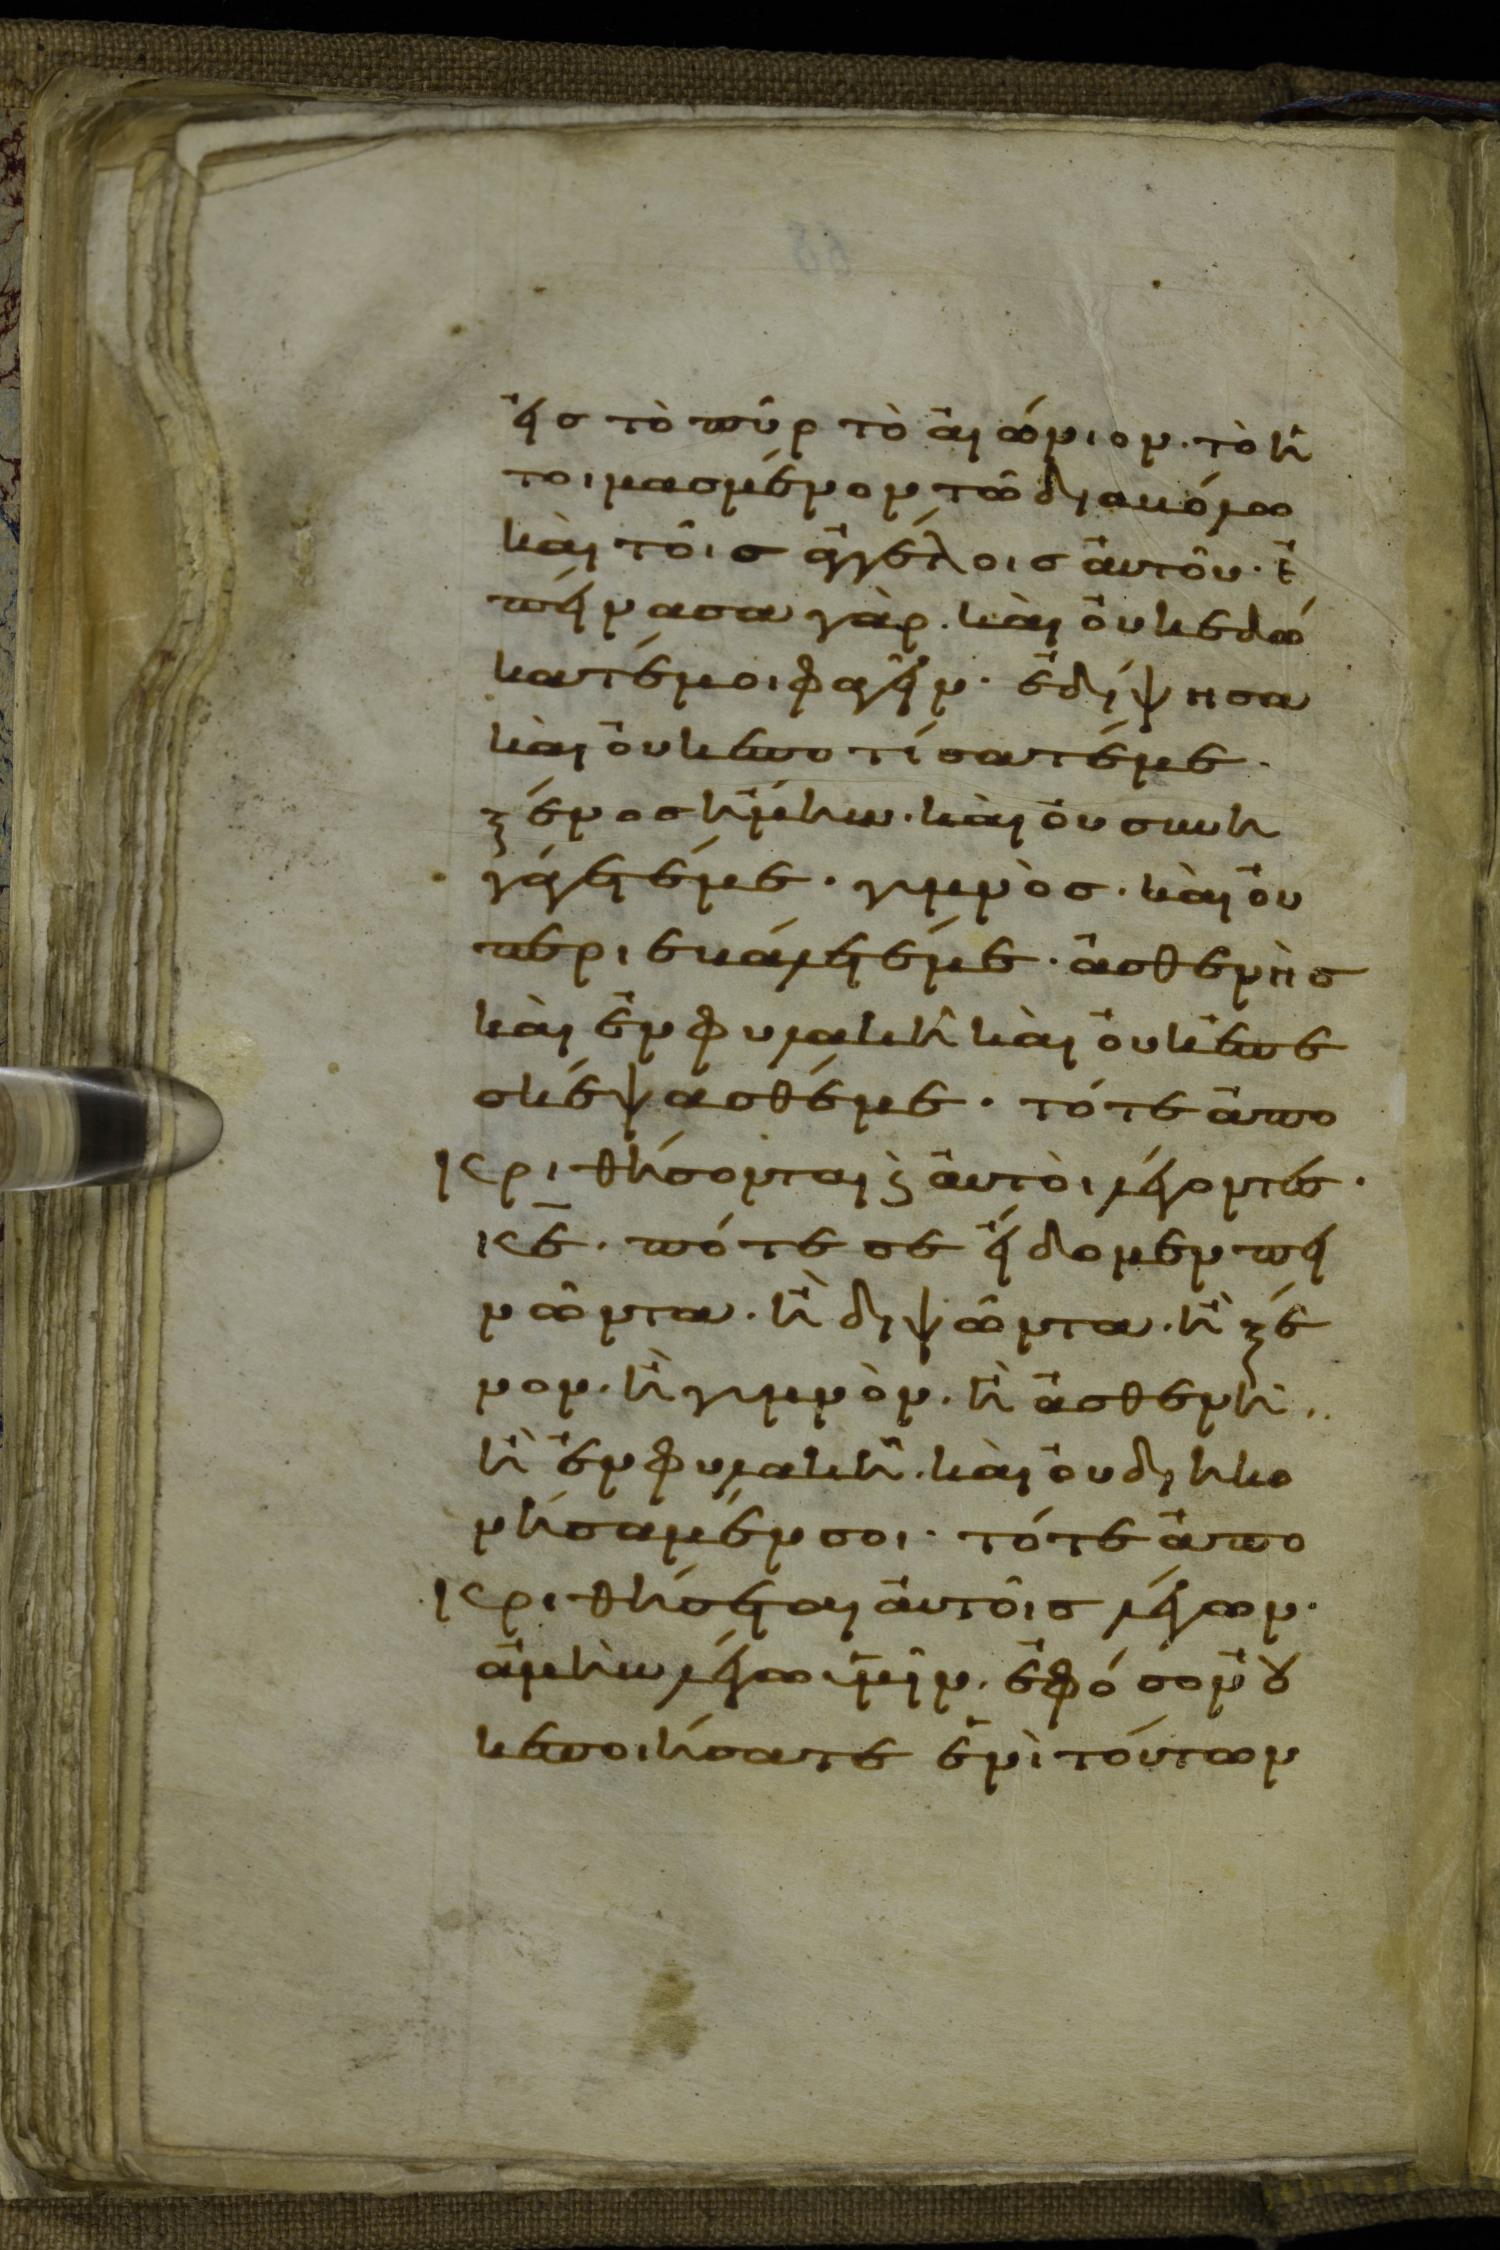 εἰς τὸ πῦρ τὸ ἀιώνιον· τὸ ἡ
τοιμασμένον τῶ διακόλω
κὰι τοῖς ἀγγέλοις ἀυτοῦ· ἐ
πείνασα γὰρ. κὰι ὀυκεδώ
κατέμοι φαγεῖν· ἐδίψησα
κὰι ὀυκεποτίσατέμε.
ξένος ἤμην. κὰι ὀυ συνη
γάγετέμε. γυμνὸς. κὰι ὀυ
περιεκάλετέμε. ἀσθενὴς
κὰι ἐν φυλακῆ κὰι ὀυκ ἐπε
σκέψασθέμε. τότε ἀπο
κριθήσονται ϗ ἀυτὸι λέγοντες.
κε̄. πότε σε εἴδομεν πει
νῶντα. ἢ διψῶντα. ἢ ξέ
νον. ἢ γυμνὸν. ἢ ἀσθενῆ..
ἢ ἐν φυλακῆ. κὰι ὀυ διηκο
νήσαμέν σοι. τότε ἀπο
κριθήσεται ἀυτοῖς λέγων.
ἀμὴν λέγω ὑμῖν. ἐφόσον ȣ
κεποιήσατε ἑνὶ τούτων